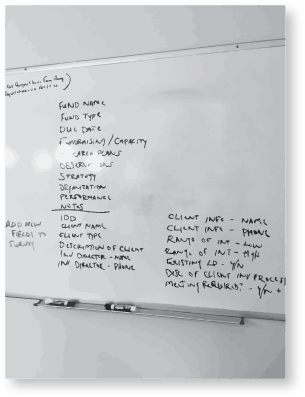 FUND NAME
FUND TYPE
DUE DATE
FUNDRAISING/CAPACITY
PLANS
DESCRIPTIONS
STRATEGY
ORGANIZATION
PERFORMANCE
NOTES
ADD NEW
FIELDS TO
SURVEY
IDD
CLIENT NAME
CLIENT TYPE
DESCRIPTION OF CLIENT
INV DIRECTOR - NAME
INV DIRECTOR - PHONE
CLIENT INFO - NAME
CLIENT INFO - PHONE
RANGE OF INT - LOW
RANGE OF INT - HIGH
EXISTING LP - Y/N
DESC OF CLIENT INV PROCESS
MEETING REQUIRED? - Y/N +